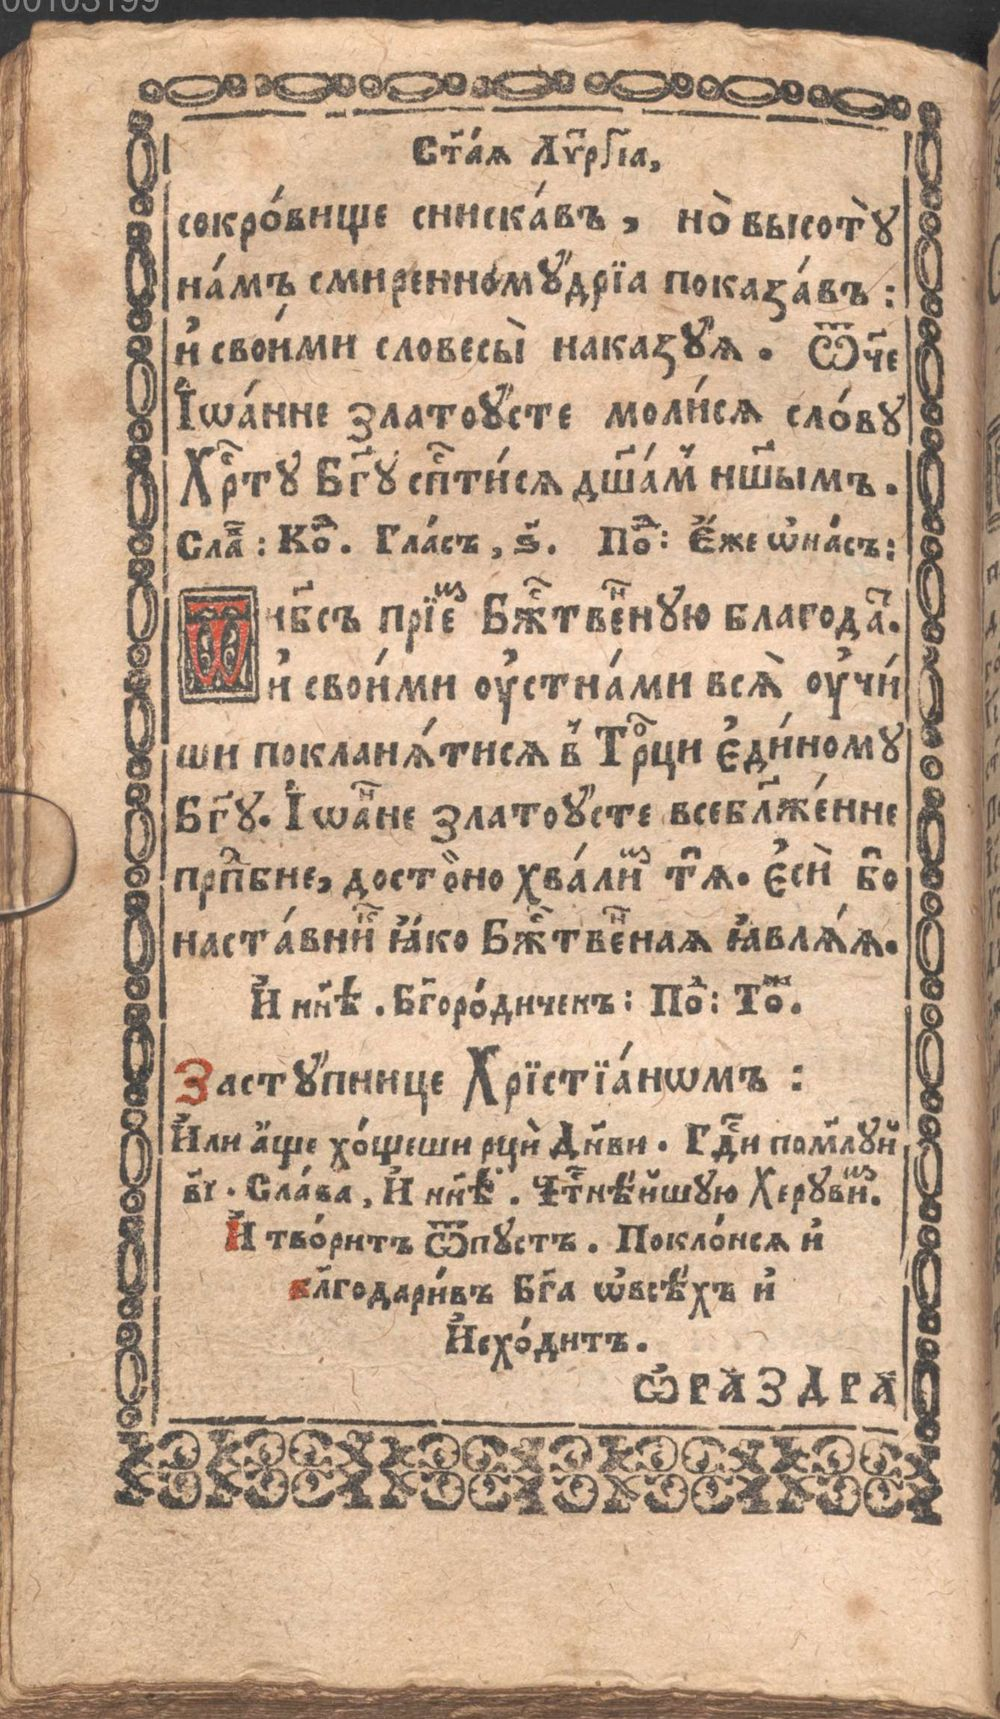 00103199
Ст҃а́я Лѵ҃рⷢ҇іа,
сокро́вище сниска́въ , но̀ высотꙋ̀
на́мъ смиренномꙋ́дрїа показа́въ :
и҆ свои́ми словесы̀ наказꙋ́ѧ . Ѿч҃е
І҆ѡа́нне Златоꙋ́сте моли́сѧ сло́вꙋ
Хрⷭ҇тꙋ Бг҃ꙋ сп҃сти́сѧ дш҃а́м̾ нш҃ымъ .
Слаⷡ҇ : Коⷣ . Гла́съ , ѕ҃ . Поⷣ : Е҆́же ѡ҆на́съ :
Ѿ нб҃съ прїе́мъ Бжⷭ҇твеⷩ҇нꙋю благодаⷮ .
и҆ свои́ми оу҆стна́ми всѧ̀ оу҆чи́
ши покланѧ́тисѧ в̾ Троⷪ҇ци є҆ди́номꙋ
Бг҃ꙋ . І҆ѡаⷩ҇не Златоꙋ́сте всебл҃же́нне
прпⷣбне , досто́йно хва́лим̾ тѧ̀ . є҆сѝ бо
наста́вниⷦ҇ ꙗ҆́ко Бжⷭ҇твеⷩ҇наѧ ꙗ҆влѧ́ѧ .
И҆ нн҃ѣ . Бг҃оро́диченъ : Поⷣ : Тоⷤ .
Застꙋ́пнице Хрїстїа́нѡмъ :
И҆ли а҆́ще хо́щеши рцѝ Дн҃ви . Гдⷭ҇и пом҃лꙋй
в҃і . Сла́ва , И҆ нн҃ѣ . Чтⷭ҇нѣ́йшꙋю Херꙋви́м .
И҆ тво́ритъ ѿпꙋстъ . Покло́нсѧ и҆
бл҃годари́въ Бг҃а ѡ҆всѣ́хъ и҆
И҆схо́дитъ .
Ѡ҆ РАЗДРА